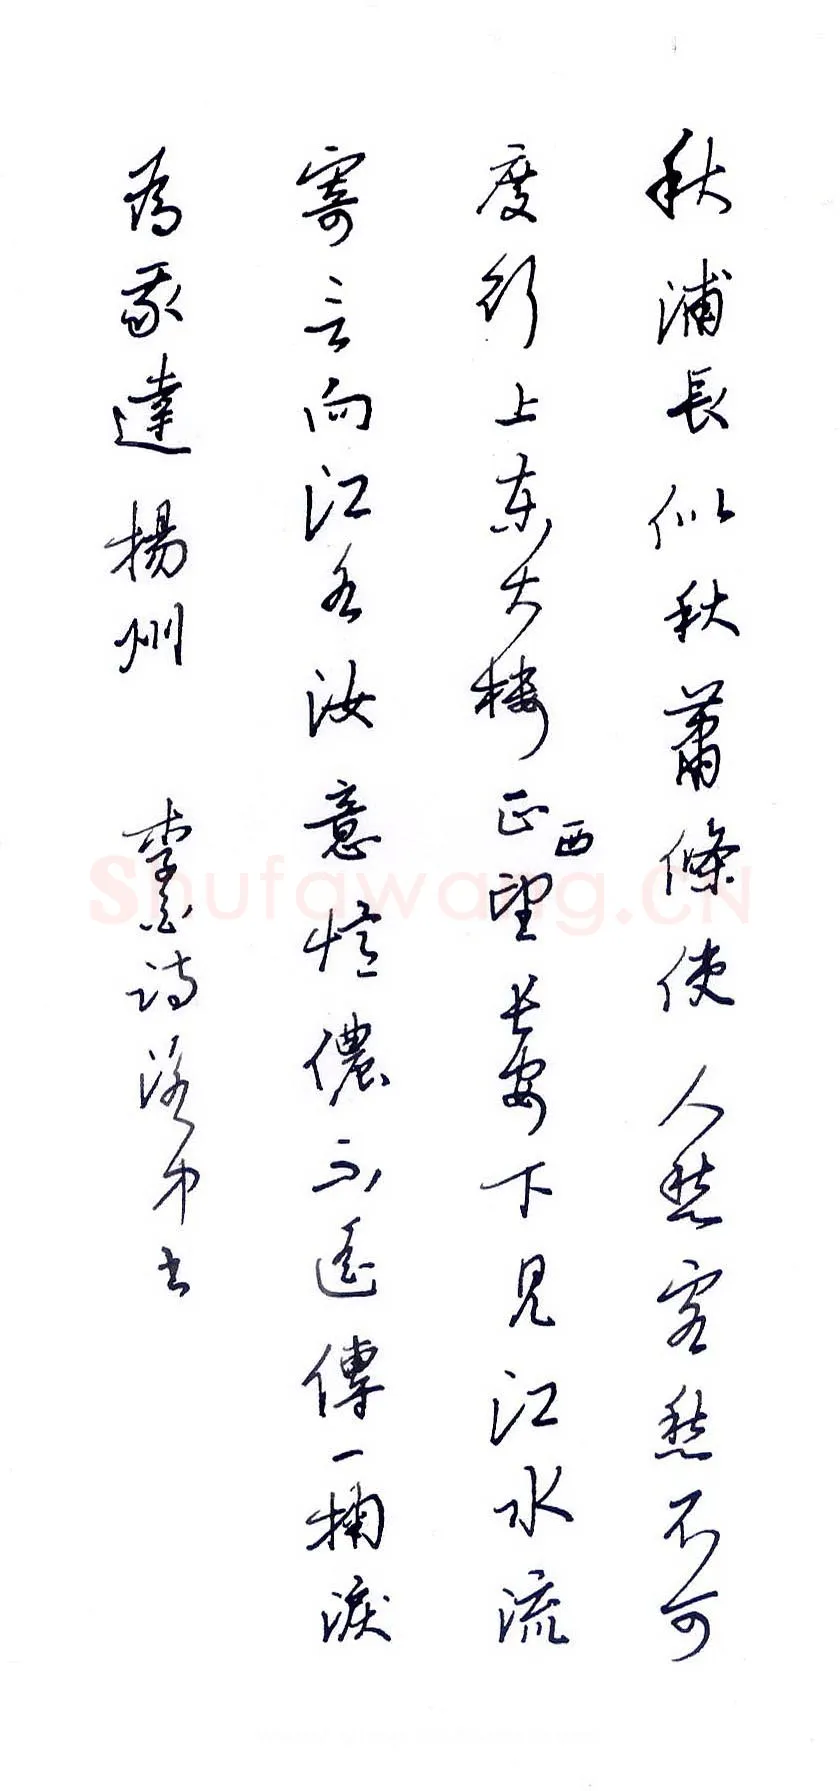 秋浦長似秋蕭條使人愁客愁不可
度行上东大楼正西望长安下見江水流
寄言向江水汝意憶儂不遥傳一掬淚
為我達揚州 李白詩 书
Shufawang.CN